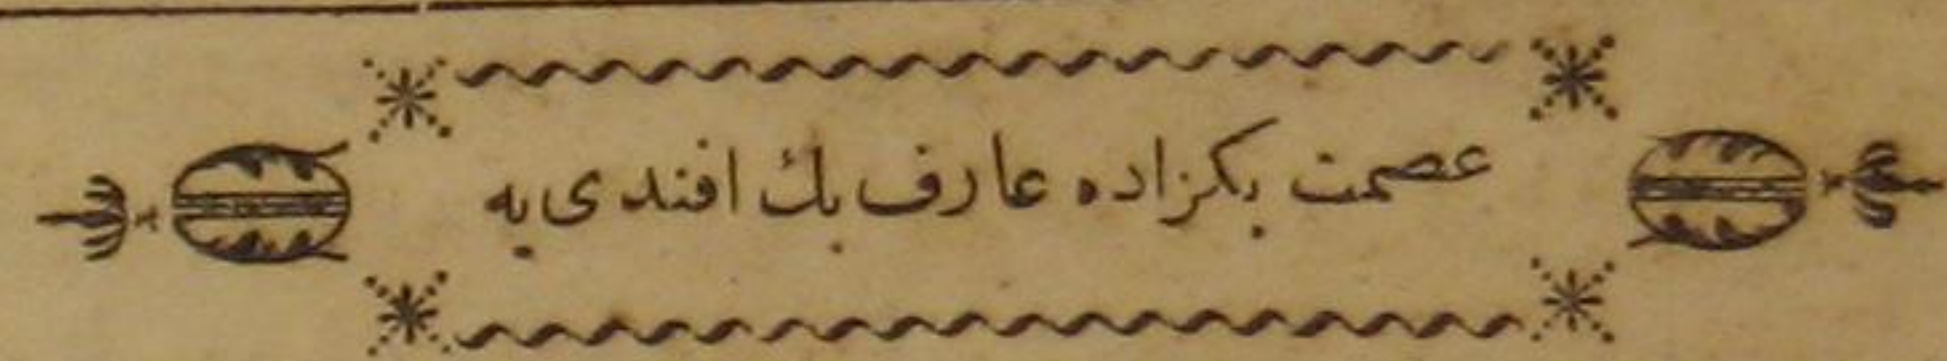 عصمت بكزاده عارف بك افندی یه